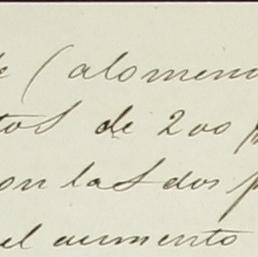 (alomen
tos de 200 p
on las dos p
el aumento